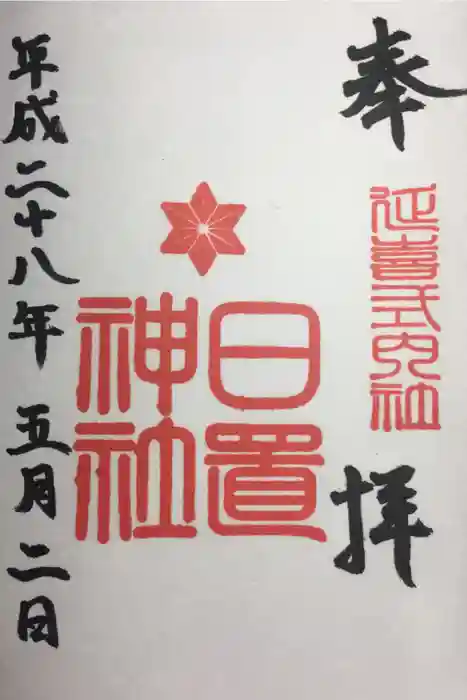 奉拝
延喜式内社
日置
神社
平成二十八年五月二日